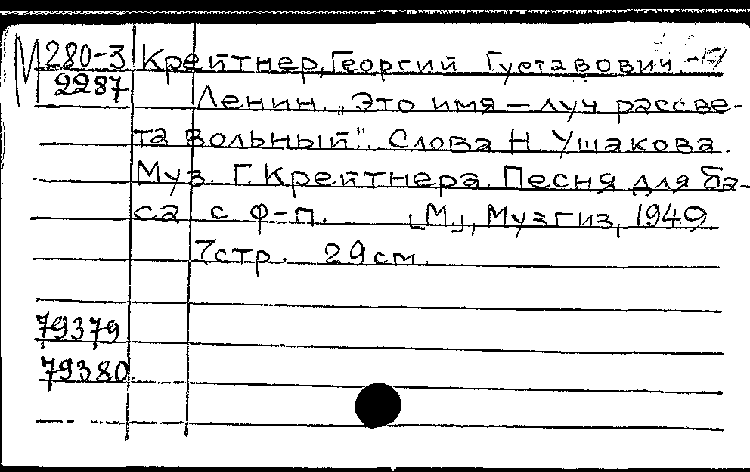 М 280-3 Крейтнер, Георгий Густавович.
2287 Ленин. „Это имя — луч рассве-
та вольный". Слова Н Ушакова.
Муз. Г. Крейтнера. Песня для ба-
са с ф-п. [М], Музгиз, 1940
7стр. 29см.
79379
79380